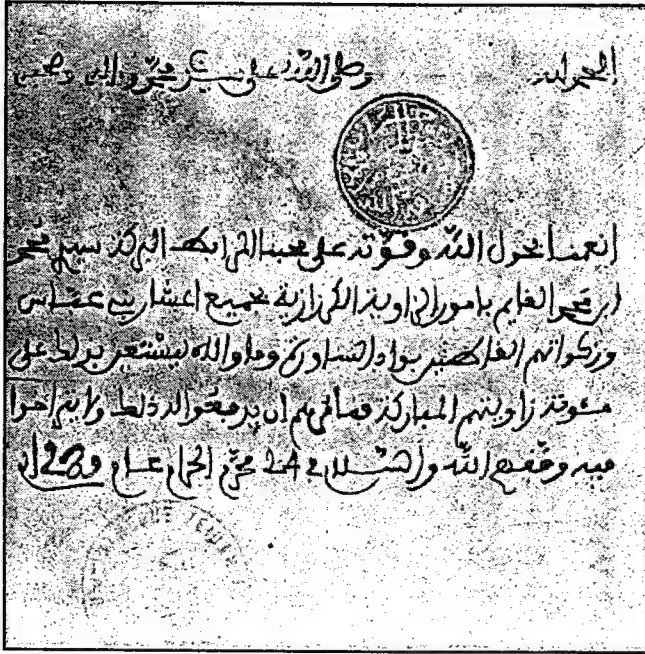 الحمد لله وصلى الله على سيدنا محمد وآله وصحبه
أنعمنا بحول الله وقوته على محبنا المرابط البركة سيدي محمد
ابن محمد القايم بامور الزاوية الكرزازية بجميع اعشار بني عباس
وزكواتهم القاطنين بواد الساورة وما والاه ليستعين بذلك على
مئونة زاويتهم المباركة فنأمرهم ان يدفعوا له ذلك ولا يتراخوا
فيه وفقهم الله والسلام في محرم الحرام عام